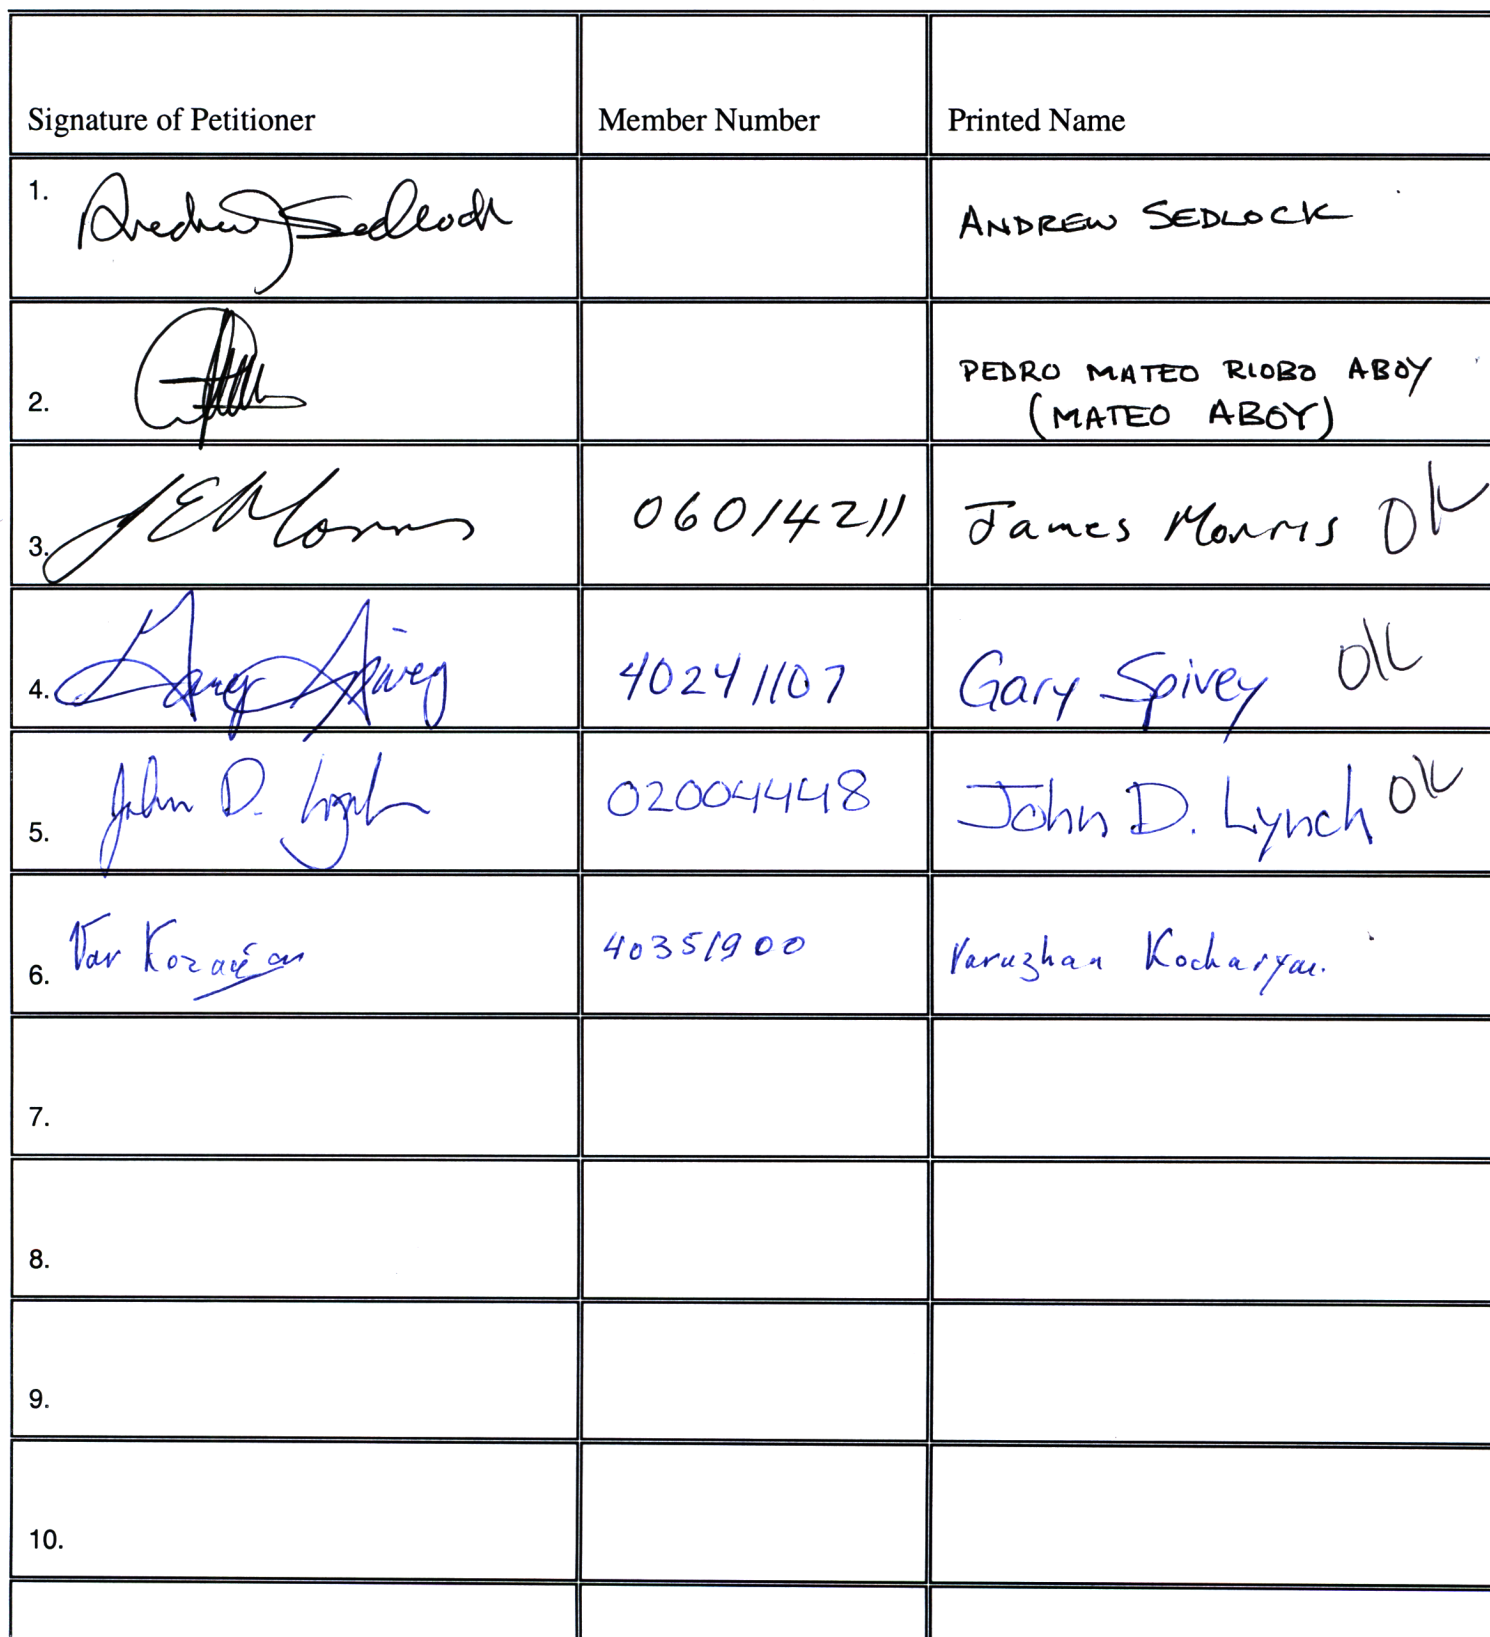 Signature of Petitioner Member Number Printed Name
1. Andrew J Sedlock ANDREW SEDLOCK
2. PEDRO MATEO RIOBO ABOY
(MATEO ABOY)
3. JE Morris 06014211 James Morris OK
4. Gary Spivey 40241107 Gary Spivey OK
5. John D. Lynch 02004448 John D. Lynch OK
6. Var 40351900 Varuzhan Kocharyan.
7.
8.
9.
10.